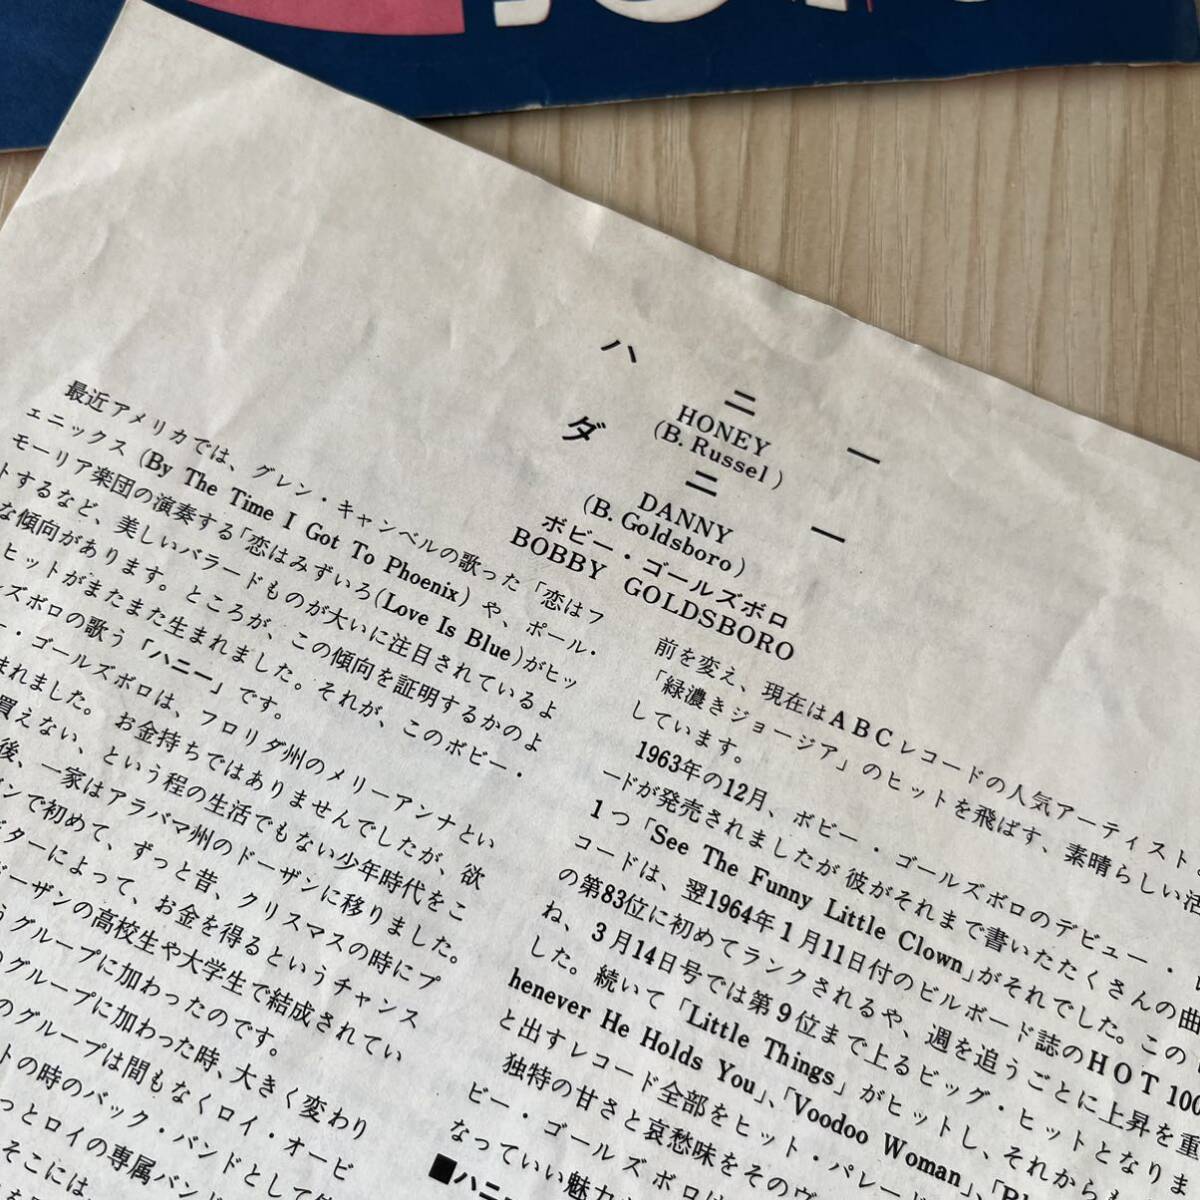 ハニー
HONEY
(B. Russel)
ダニー
DANNY
(B. Goldsboro)
ボビー・ゴールズボロ
BOBBY GOLDSBORO
最近アメリカでは、グレン・キャンベルの歌った「恋はフ
ェニックス (By The Time I Got To Phoenix) や、ポール・
モーリア楽団の演奏する「恋はみずいろ(Love Is Blue)がヒッ
トするなど、美しいバラードものが大いに注目されているよ
な傾向があります。ところが、この傾向を証明するかのよ
ヒットがまたまた生まれました。それが、このボビー・
ルズボロの歌う「ハニー」です。
ー・ゴールズボロは、フロリダ州のメリーアンナとい
まれました。お金持ちではありませんでしたが、欲
買えない、という程の生活でもない少年時代をこ
後、一家はアラバマ州のドーザンに移りました。
ンで初めて、ずっと昔、クリスマスの時にプ
ターによって、お金を得るというチャンス
ドーザンの高校生や大学生で結成されてい
うグループに加わったのです。
のグループに加わった時、大きく変わり
のグループは間もなくロイ・オービ
トの時のバック・バンドとして
っとロイの専属バン
そこには、
前を変え、現在はABCレコードの人気アーティスト
「緑濃きジョージア」のヒットを飛ばす、素晴らしい活
しています。
1963年の12月、ボビー・ゴールズボロのデビュー・レ
ードが発売されましたが彼がそれまで書いたたくさんの曲
1つ「See The Funny Little Clown」がそれでした。この
コードは、翌1964年1月11日付のビルボード誌のHOT 100
の第83位に初めてランクされるや、週を追うごとに上昇を重
ね、3月14日号では第9位まで上るビッグ・ヒットとなりま
した。続いて「Little Things」がヒットし、それからも
henever He Holds You」、「Voodoo Woman」、
と出すレコード全部をヒット・パレード
独特の甘さと哀愁味をそのヴ
ビー・ゴールズボロは
なっていい魅力
■ハニ